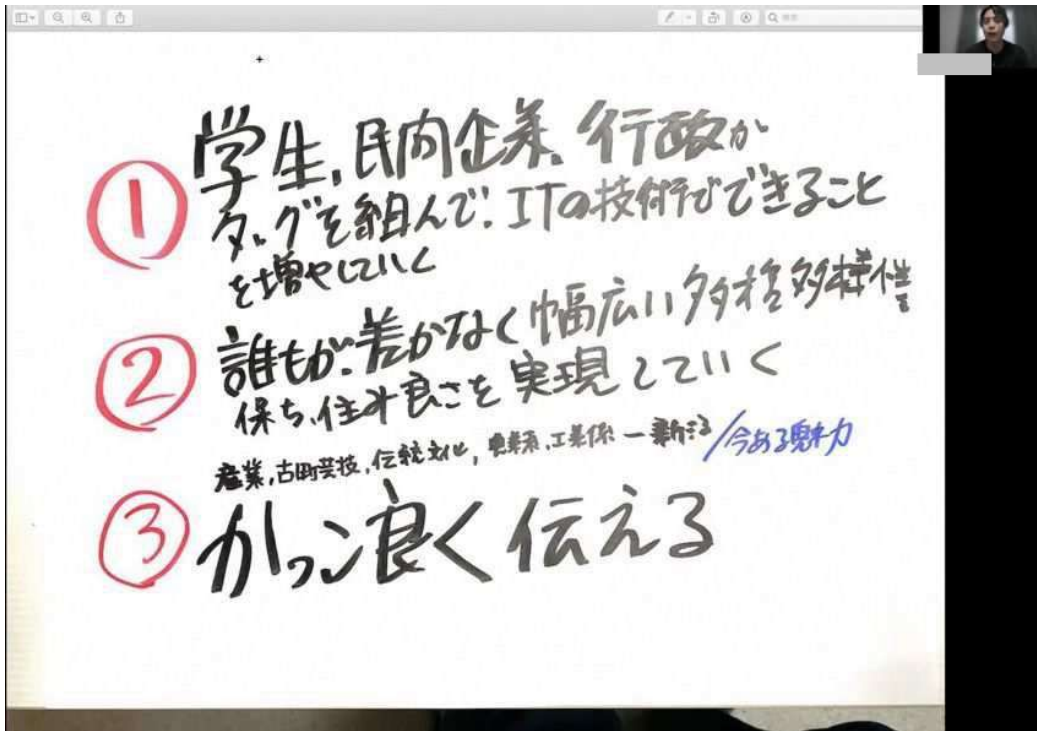 検索
① 学生、民間企業、行政が
タッグを組んで、ITの技術でできること
を増やしていく
② 誰もが、差がなく幅広い 多種多様性を
保ち、住み良さを実現していく
産業、古町芸技、伝統文化, 農業系、工業係 一新する/今ある魅力
③ かっこ良く伝える